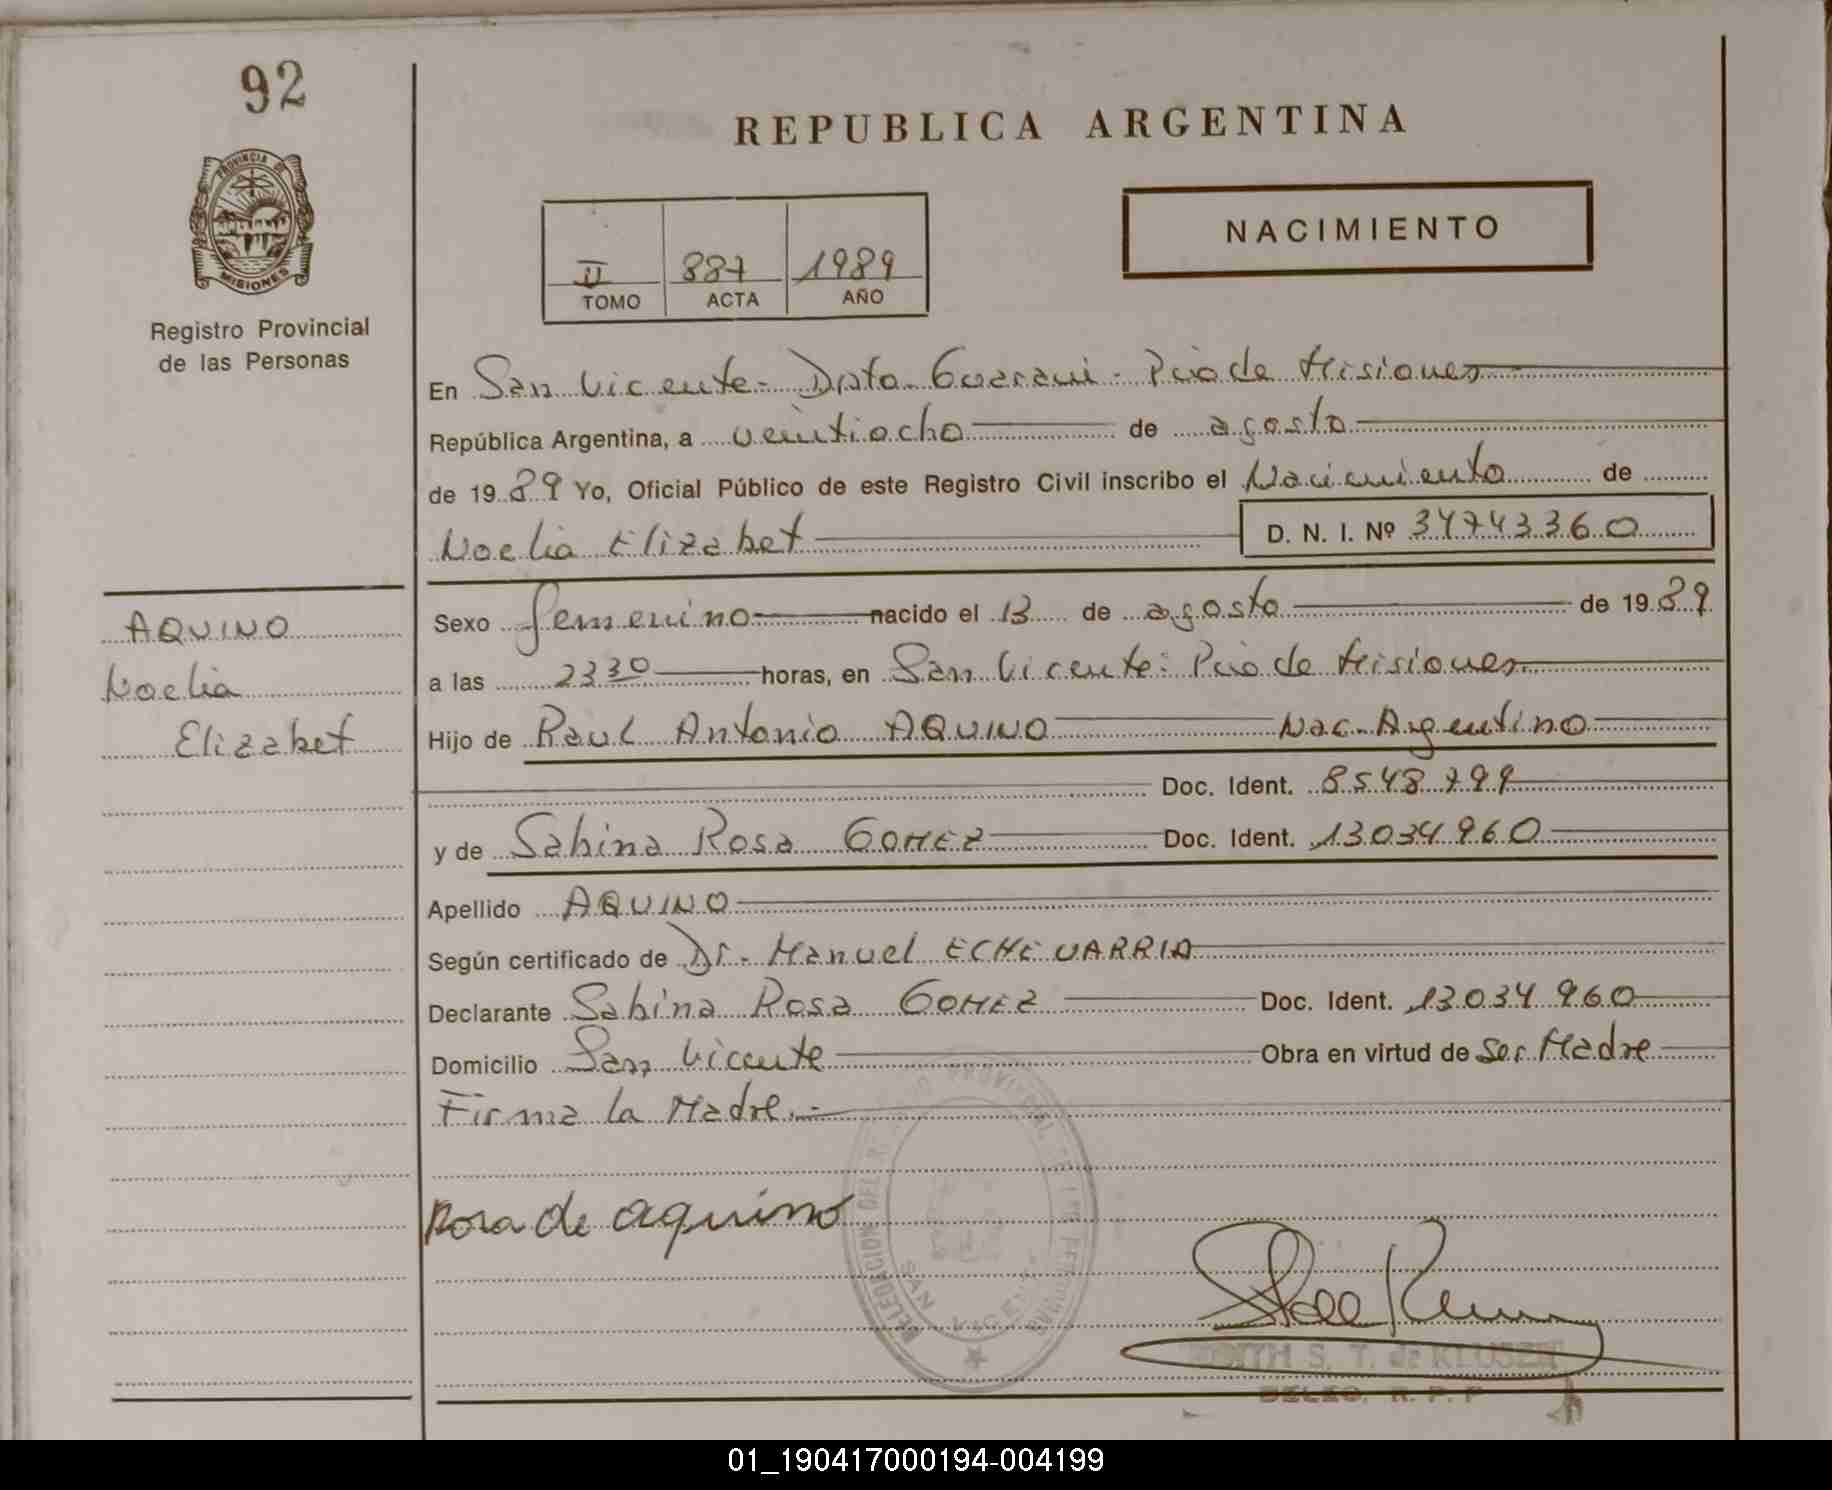 92
REPUBLICA ARGENTINA
PROVINCIA DE
MISIONES
Registro Provincial
de las Personas
II 887 1989
TOMO ACTA AÑO
NACIMIENTO
En San Vicente - Dpto Guarani - Pcia de Misiones
República Argentina, a veintiocho de agosto
de 1989 Yo, Oficial Público de este Registro Civil inscribo el Nacimiento de
Noelia Elizabet D. N. I. Nº 34743360
AQUINO
Noelia
Elizabet
Sexo femenino nacido el 13 de agosto de 1989
a las 23 30 horas, en San Vicente: Pcia de Misiones
Hijo de Raul Antonio AQUINO Nac. Argentino
Doc. Ident. 8548799
y de Sabina Rosa GOMEZ Doc. Ident. 13034960
Apellido AQUINO
Según certificado de Dr. Manuel ECHEVARRIA
Declarante Sabina Rosa GOMEZ Doc. Ident. 13034960
Domicilio San Vicente Obra en virtud de Ser Madre
Firma la Madre.-
Rosa de aquino
SAN VICENTE
S. T. de KLUSEN
DELEG. R. P. P
01_190417000194-004199